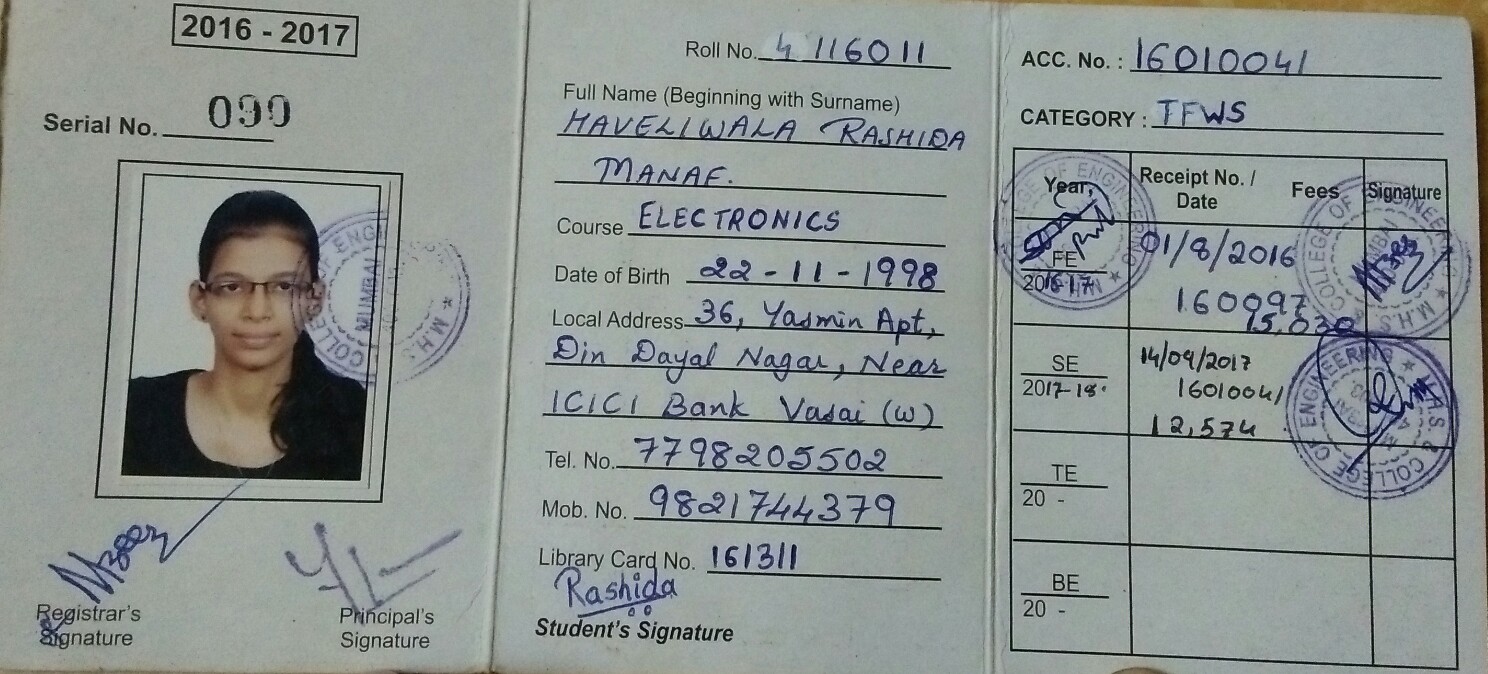 2016 - 2017
Serial No. 099
Registrar's
Signature
Principal's
Signature
Roll No. 4 116011
Full Name (Beginning with Surname)
HAVELIWALA RASHIDA
MANAF.
Course ELECTRONICS
Date of Birth 22-11-1998
Local Address 36, Yasmin Apt,
Din Dayal Nagar, Near
ICICI Bank Vasai (W)
Tel. No. 7798205502
Mob. No. 9821744379
Library Card No. 161311
Rashida
Student's Signature
ACC. No. : 16010041
CATEGORY : TFWS
Year Receipt No. / Date Fees Signature
FE
2016-17
01/8/2016
160097
15,030
SE
2017-18.
14/09/2017
16010041
12,574
TE
20 -
BE
20 -
COLLEGE OF ENGINEERING ★ M.H.S
MUMBAI